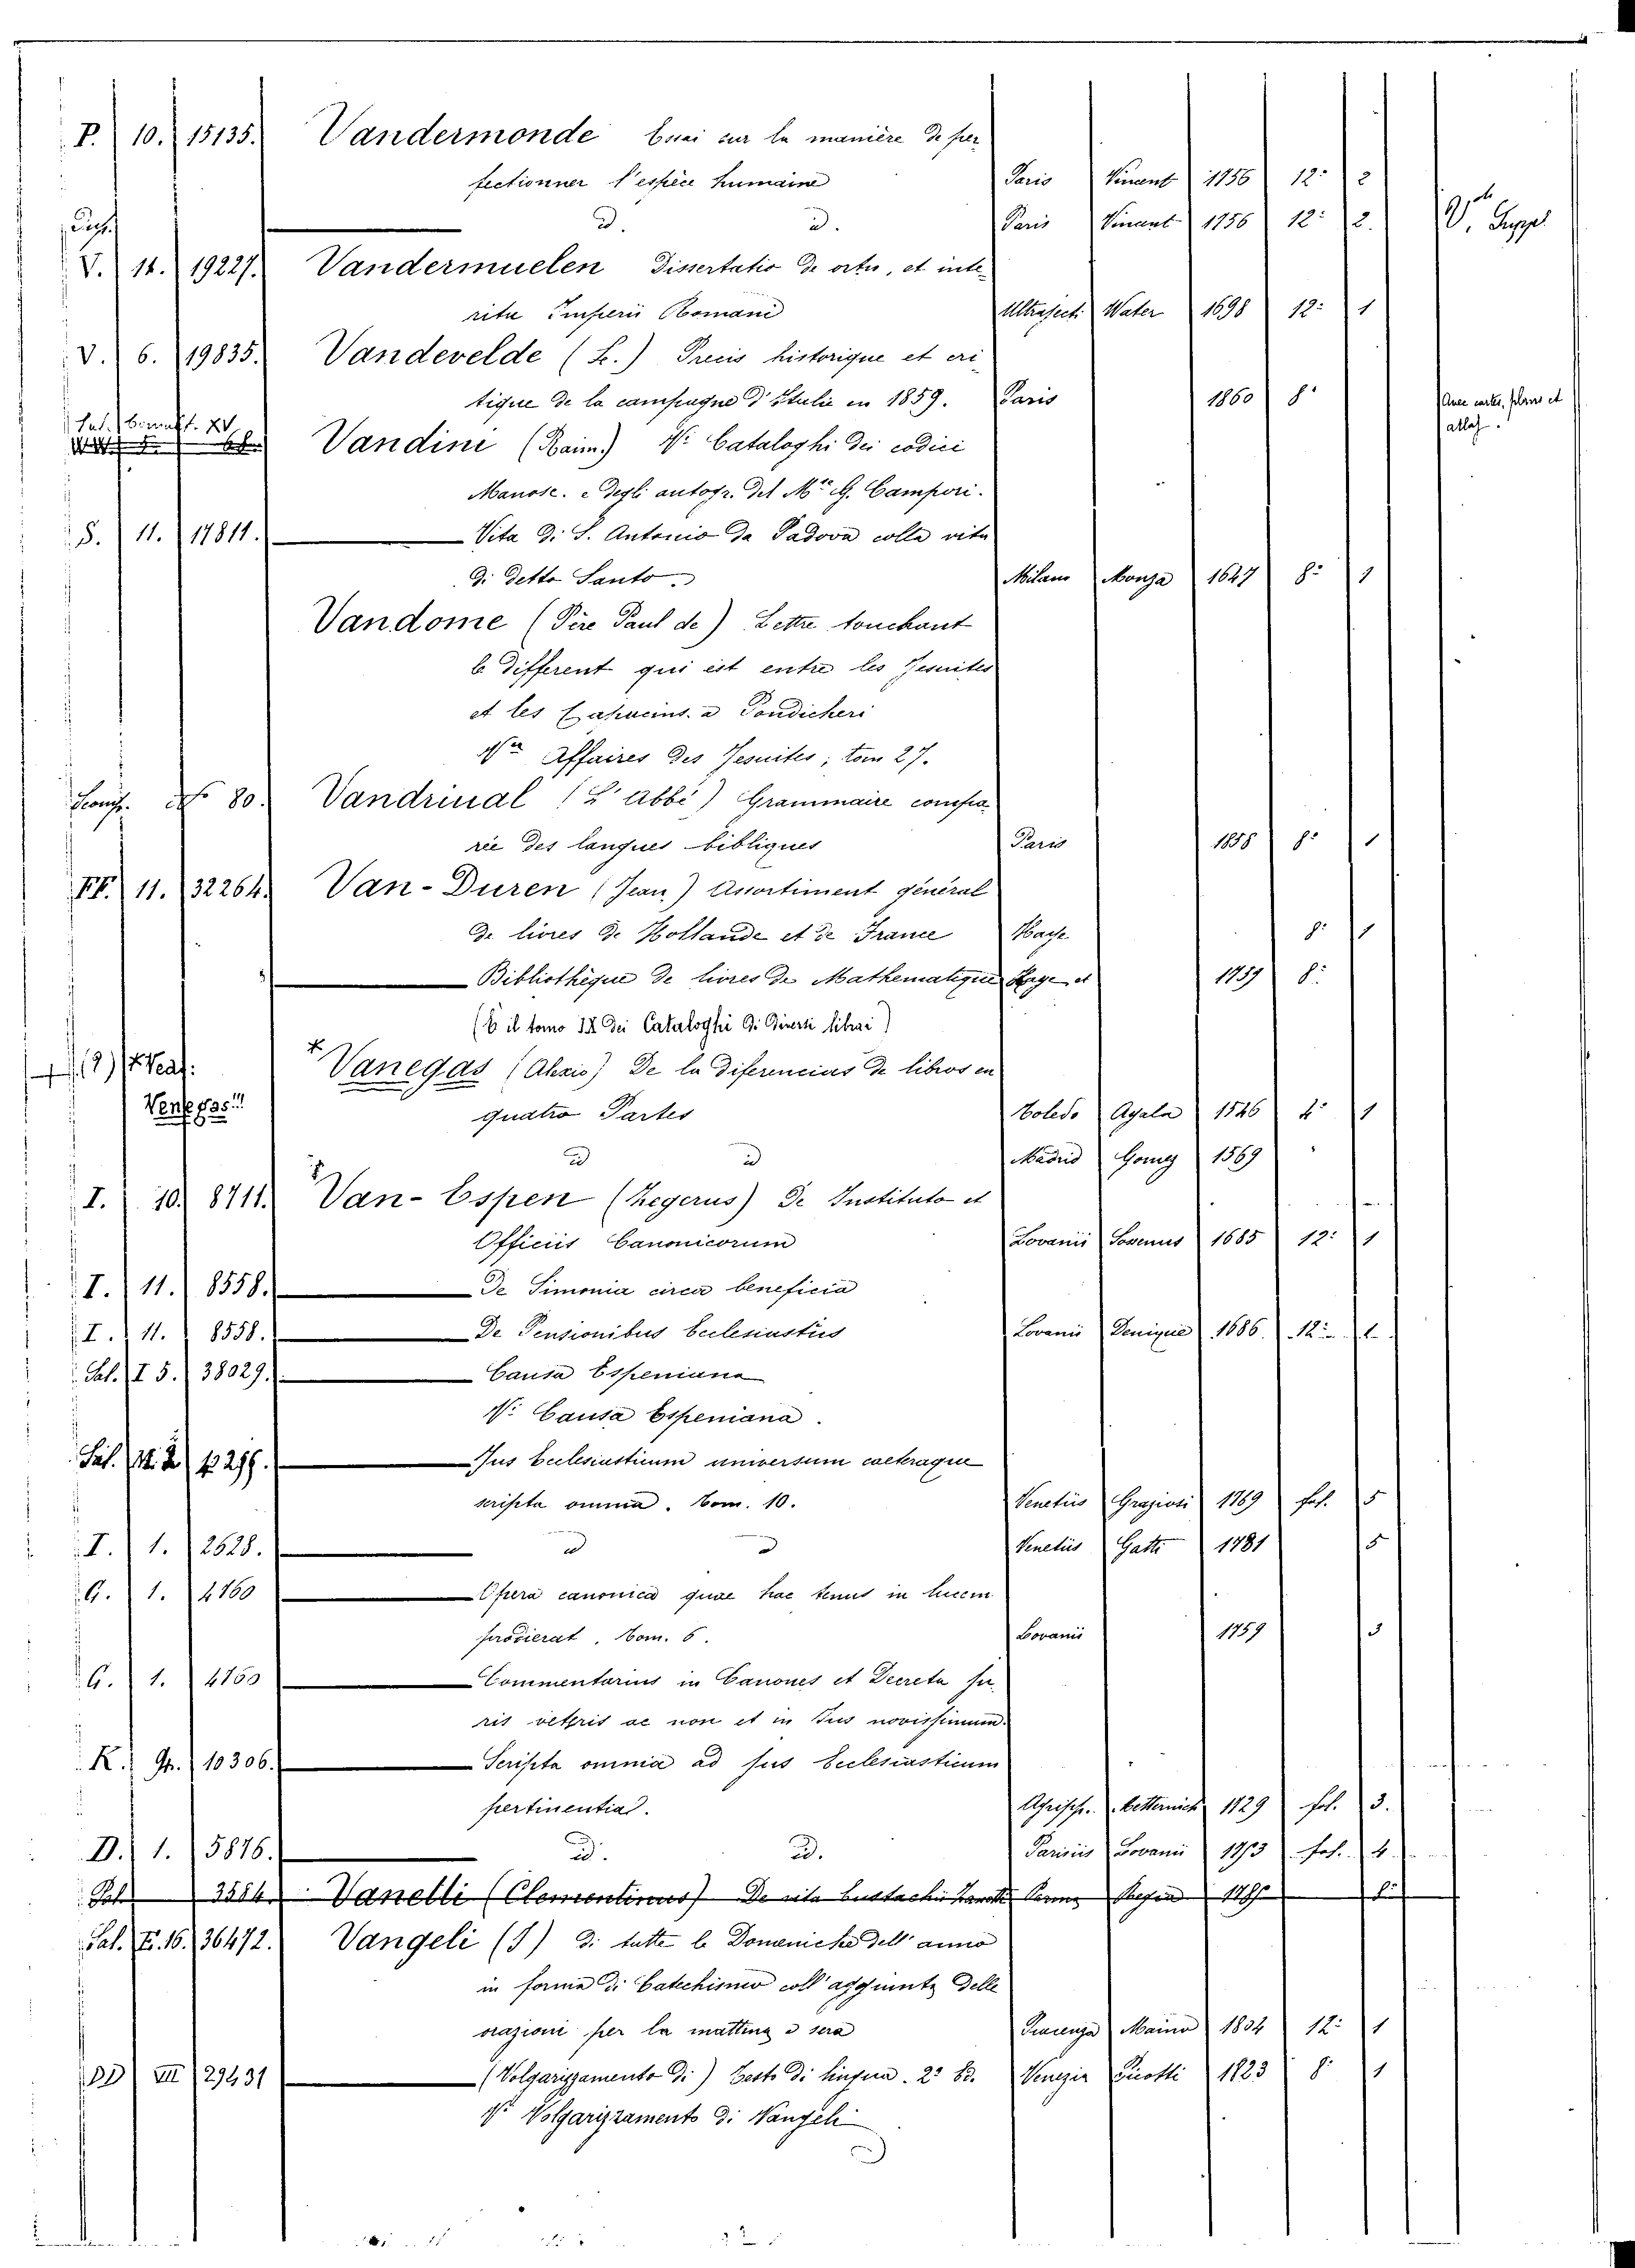 P. 10. 15135. Vandermonde Essai sur la manière de per
fectionner l'espèce humaine Paris Vincent 1756 12º 2
Dupl. id. id. Paris Vincent 1756 12º 2. V. Suppl
V. 14. 19227. Vandermuelen Dissertatio de ortu, et inte
ritu Imperii Romani Ultraject. Water 1698 12º 1
V. 6. 19835. Vandevelde (L.) Precis historique et cri
tique de la campagne d'Italie en 1859. Paris 1860 8º Avec cartes, plans et
atlas.
Vandini (Raim.) Vi Cataloghi dei codici
Manosc. e degli autogr. del Mse G. Campori.
S. 11. 17811. Vita di S. Antonio da Padova colla vita
di detto Santo Milano Monza 1647 8º 1
Vandome (Père Paul de) Lettre touchant
le different qui est entre les Jesuites
et les Capucins a Pondicheri
Va Affaires des Jesuites, tom 27.
Nº 80. Vandrinal (L'Abbé) Grammaire compa
rée des langues bibliques Paris 1858 8º 1
FF. 11. 32264. Van-Duren (Jean) Assortiment général
de livres de Hollande et de France Haye 8º 1
Bibliothèque de livres de Mathematique Haye et 1789 8º
(È il tomo IX dei Cataloghi di diversi librai)
+ (?) Venegas!!! Vanegas (Alexio) De la diferencias de libros en
quatro Partes Toledo Ayala 1546 4º 1
id id Madrid Gomez 1569 "
I. 10. 8711. Van-Espen (Zegerus) De Instituto et
Officiis Canonicorum Lovanii 1685 12º 1
I. 11. 8558. De Simonia circa beneficia
I. 11. 8558. De Pensionibus Ecclesiasticis Lovanii Denique 1686. 12º 1
Sal. I 5. 38029. Causa Espeniana
Vi Causa Espeniana.
Sal. Jus Ecclesiasticum universum caeteraque
scripta omnia. Tom. 10. Venetiis Graziosi 1769 fol. 5
I. 1. 2628. id id Venetiis Gatti 1781 5
G. 1. 4760 Opera canonica quae hac tenus in lucem
prodierat, Tom. 6. Lovanii 1759 3
G. 1. 4760 Commentarius in Canones et Decreta ju
ris veteris ac non et in Jus novissimum.
K. Gr. 10306. Scripta omnia ad jus Ecclesiasticum
pertinentia. Metternich 1729 fol. 3.
D. 1. 5876. id. id. Parisiis Lovanii 1753 fol. 4
Sal 3584. Vanelli (Clementinus) De vita Eustachii Parma Regia 8º
Sal. E. 16. 36472. Vangeli (I) di tutte le Domeniche dell'anno
in forma di Catechismo coll'aggiunta delle
orazioni per la mattina e sera Piacenza Maino 1834 12º 1
DD VII 29431 (Volgarizzamento di) Testo di lingua. 2a Ed. Venezia Picotti 1823 8º 1
Vi Volgarizzamento di Vangeli